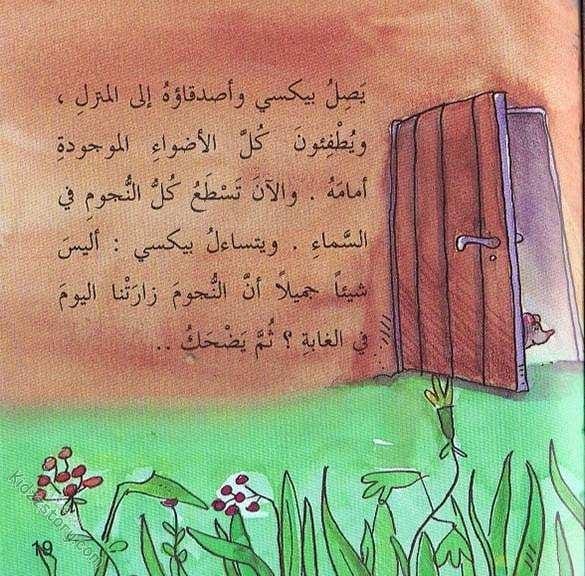 يَصِلُ بيكسي وأصدقاؤهُ إلى المنزلِ ،
ويُطْفِئونَ كُلَّ الأضواءِ الموجودةِ
أمامَهُ . والآنَ تَسْطَعُ كُلُّ النُّجومِ في
السَّماءِ . ويتساءلُ بيكسي : أليسَ
شيئاً جميلاً أنَّ النُّجومَ زارَتْنا اليومَ
في الغابةِ ؟ ثُمَّ يَضْحَكُ ..
19
Kidzzstory.com